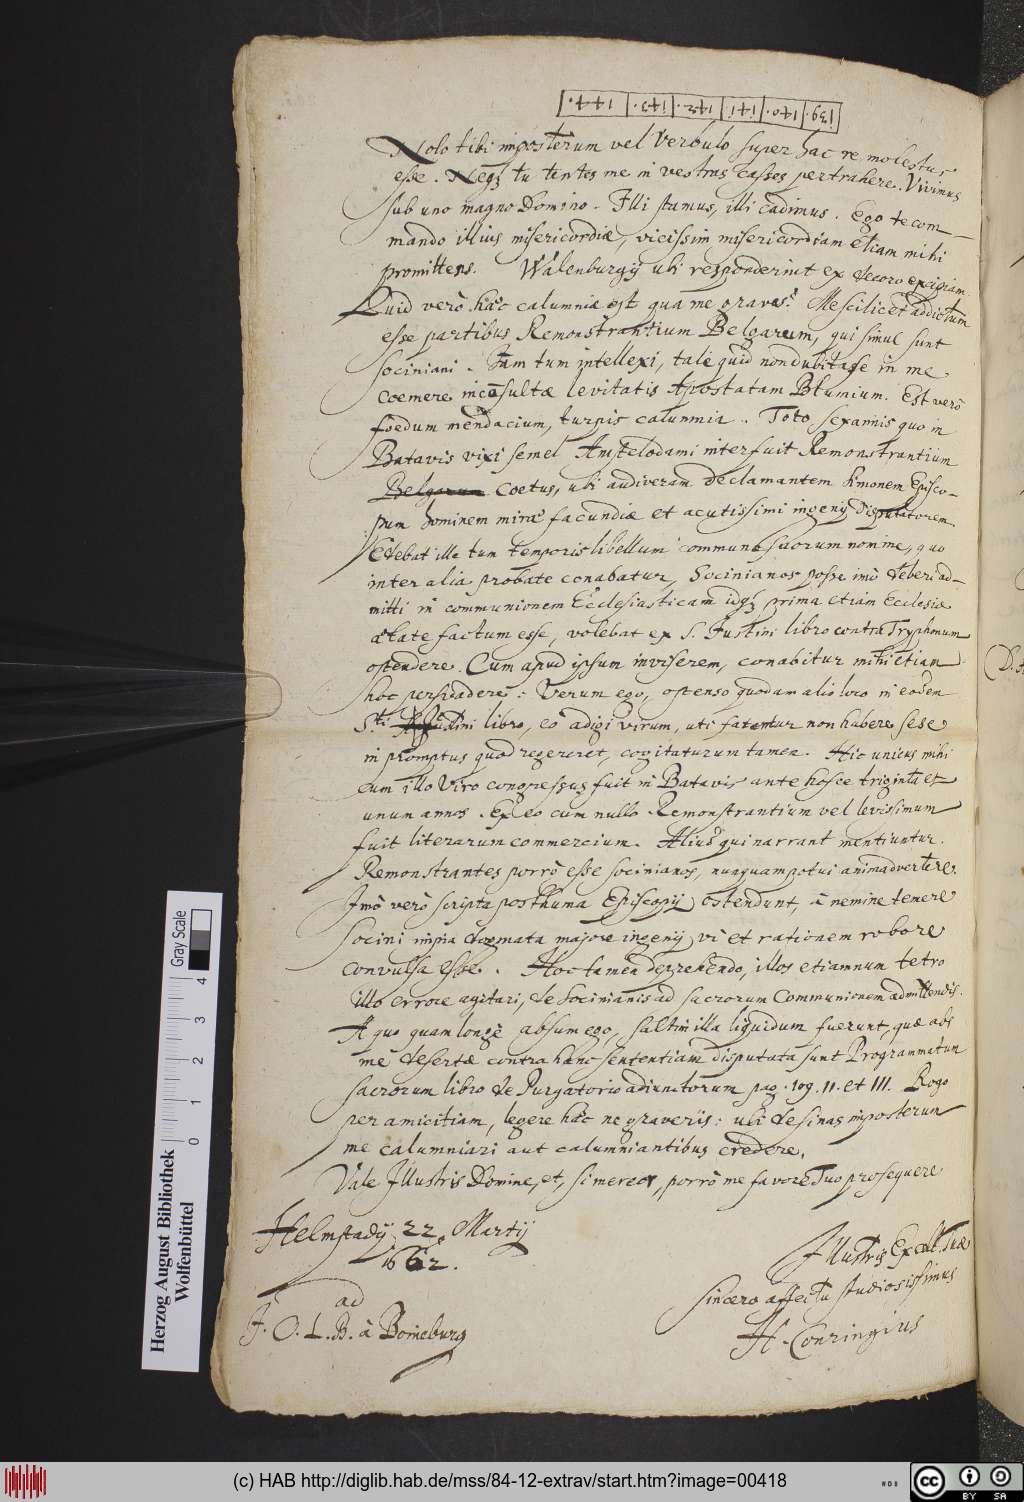 139. 140. 141 142. 143. 144.
Nolo tibi imposterum vel verbulo super hac re molestus
esse. Neq; tu tentes me in vestras casses pertrahere. Vivimus
sub uno magno Domino. Illi stamus, illi cadimus. Ego te com-
mando illius misericordiæ, vicissim misericordiam etiam mihi
promittens. Walenburgij ubi responderint ex decoro excipiam.
Quid verò hâc calumnia est qua me gravas? Me scilicet addictum
esse partibus Remonstrantium Belgarum, qui simul sunt
Sociniani. Iam tum intellexi, tale quid non dubitasse in me
evomere incōsultæ levitatis Apostatam Blumium. Est verò
foedum mendacium, turpis calumnia. Toto sexannis quo in
Batavis vixi semel Amstelodami interfuit Remonstrantium
Belgarum coetus, ubi audiveram declamantem Simonem Episco-
pum hominem miræ facundiæ et acutissimi ingenij disputatorem
Edebat ille tum temporis libellum communi suorum nomine, quo
inter alia probare conabatur, Socinianos posse imò deberi ad-
mitti in communionem Ecclesiasticam idq; prima etiam Ecclesiæ
ætate factum esse, volebat ex S. Justini libro contra Tryphonum
ostendere. Cum apud ipsum inviserem, conabitur mihi etiam
hoc persuadere: Verum ego, ostenso quodam alio loco in eodem
S.ti Justini libro, eò adigi virum, uti fatentur non habere sese
in promptus quod regereret, cogitaturum tamen. Hic unicus mihi
cum illo Viro congressus fuit in Batavis ante hosce triginta et
unun annos. Ex eo cum nullo Remonstrantium vel levissimum
fuit literarum commercium. Alius qui narrant mentiuntur.
Remonstrantes porrò esse socinianos, nunquam potui animadvertere.
Imò verò scripta posthuma Episcopij ostendunt, â nemine temere
Socini impia dogmata majore ingenij vi et rationem robore
convulsa esse. Hoc tamen deprehendo, illos etiamnum tetro
illo errore agitari, de Socinianis ad sacrorum Communionem admittendis.
A quo quam longè absum ego, saltim illa liquidum fuerunt, quæ abs
me desertæ contra hanc sententiam disputata sunt Programmatum
sacrorum libro de Purgatorio adiunctorum pag. 109. II. et III. Rogo
per amicitiam, legere hæc ne graveriis: ubi desinas imposterum
me calumniari aut calumniantibus credere.
Vale Illustris Domine, et, si mereor, porrò me favore Tuo prosequere
Helmstadij 22. Martij
1662.
Illustris Excell. Tuæ
sincero affectu studiosissimus
H. Conringius
ad
J. C. L. B. à Boineburg
Herzog August Bibliothek
Wolfenbüttel
0 1 2 3 4
Gray Scale
(c) HAB http://diglib.hab.de/mss/84-12-extrav/start.htm?image=00418
cc BY SA